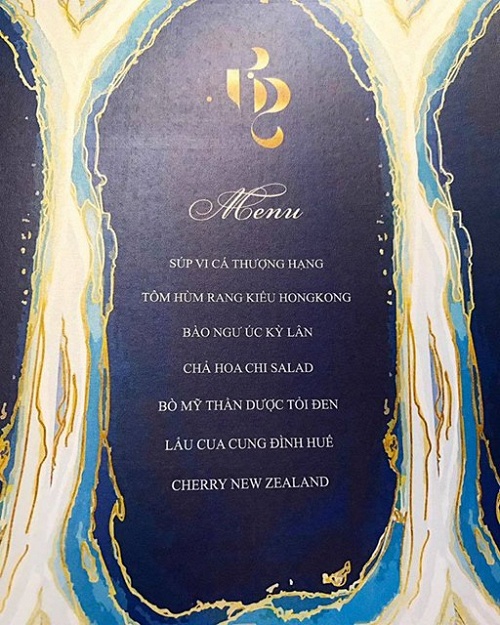 Menu
SÚP VI CÁ THƯỢNG HẠNG
TÔM HÙM RANG KIỂU HONGKONG
BÀO NGƯ ÚC KỲ LÂN
CHẢ HOA CHI SALAD
BÒ MỸ THẦN DƯỢC TỎI ĐEN
LẨU CUA CUNG ĐÌNH HUẾ
CHERRY NEW ZEALAND